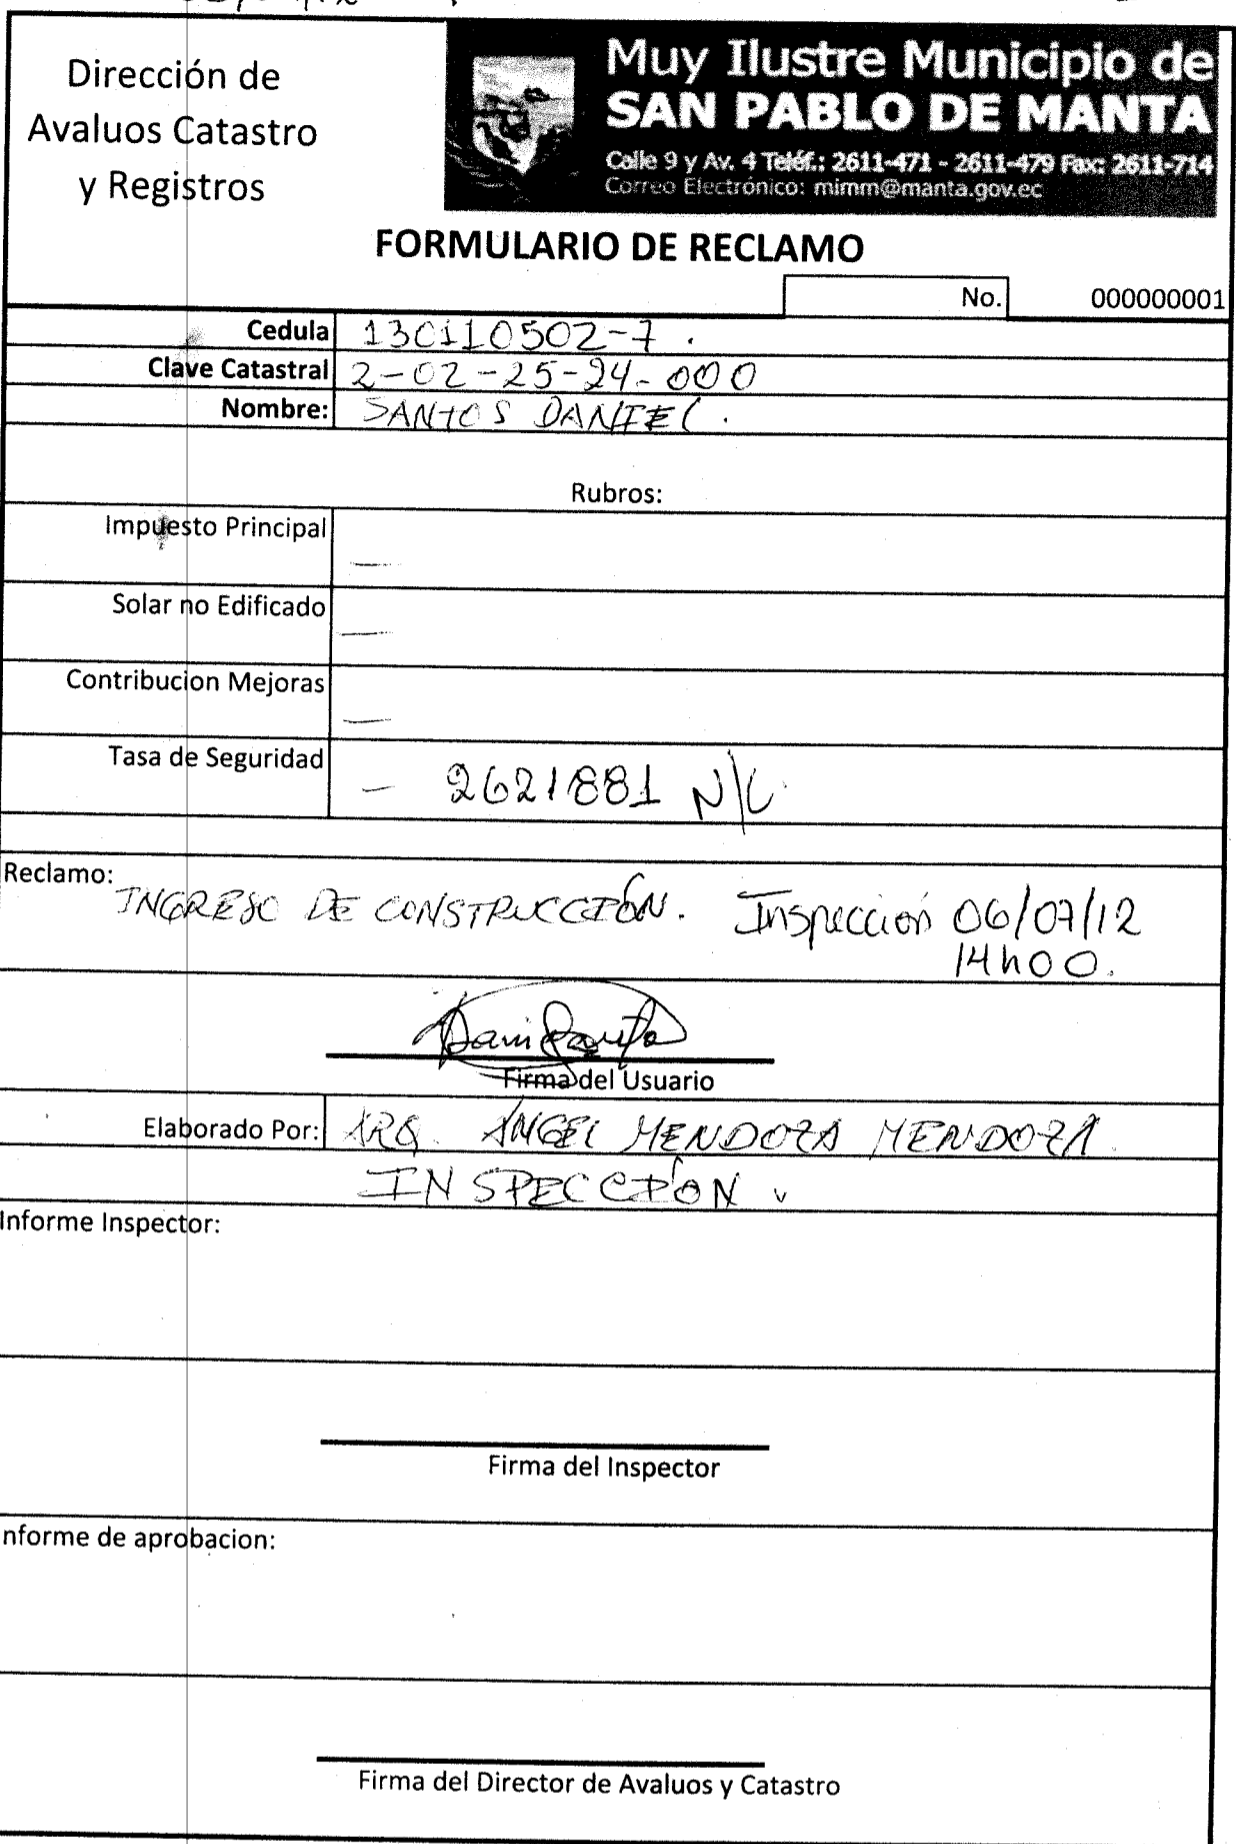 Dirección de
Avaluos Catastro
y Registros
Muy Ilustre Municipio de
SAN PABLO DE MANTA
Calle 9 y Av. 4 Teléf.: 2611-471 - 2611-479 Fax: 2611-714
Correo Electrónico: mimm@manta.gov.ec
FORMULARIO DE RECLAMO
No. 000000001
Cedula 130110502-7.
Clave Catastral 2-02-25-24-000
Nombre: SANTOS DANIEL.
Rubros:
Impuesto Principal —
Solar no Edificado —
Contribucion Mejoras —
Tasa de Seguridad — 2621881 N/C
Reclamo:
INGRESO DE CONSTRUCCIÓN. Inspección 06/07/12
14h00.
Firma del Usuario
Elaborado Por: ARQ. ANGEL MENDOZA MENDOZA
INSPECCIÓN
Informe Inspector:
Firma del Inspector
nforme de aprobacion:
Firma del Director de Avaluos y Catastro